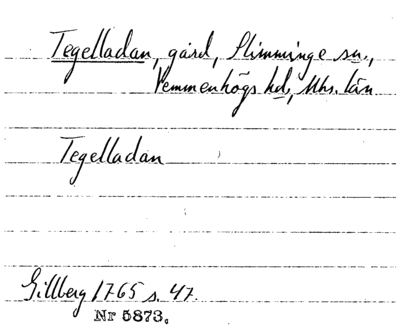 Tegelladan, gård, Slimminge sn.,
Vemmenhögs hd., Mhs. län
Tegelladan
Gillberg 1765 s. 47.
Nr 5873.